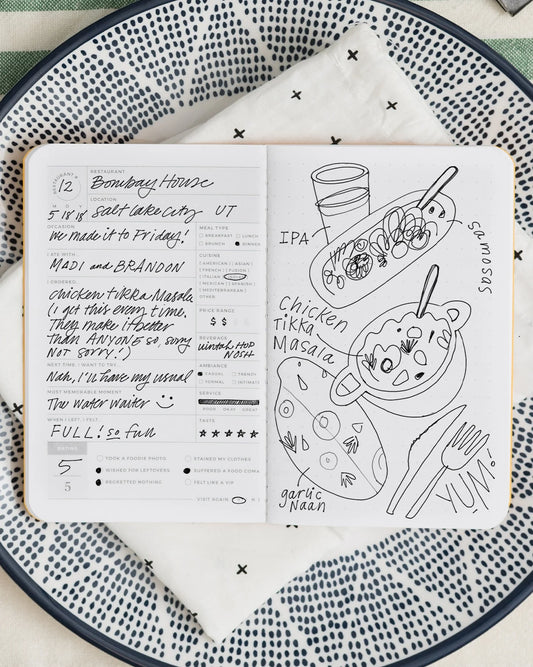 RESTAURANT #
12
RESTAURANT
Bombay House
M D Y
5 18 18
LOCATION
Salt Lake City UT
OCCASION
We made it to Friday!
MEAL TYPE
BREAKFAST LUNCH
BRUNCH DINNER
ATE WITH
MADI and BRANDON
CUISINE
AMERICAN ASIAN
FRENCH FUSION
ITALIAN
MEXICAN SPANISH
MEDITERRANEAN
OTHER
I ORDERED
chicken tikka Masala
(I get this every time.
They make it better
than ANYONE so, sorry
NOT SORRY!)
PRICE RANGE
$ $
BEVERAGE
uintah HOP
NOSH
NEXT TIME, I WANT TO TRY
Nah, I'll have my usual
AMBIANCE
CASUAL TRENDY
FORMAL INTIMATE
MOST MEMORABLE MOMENT
The Water Waiter
SERVICE
POOR OKAY GREAT
WHEN I LEFT, I FELT
FULL! so full
TASTE
RATING
5
5
TOOK A FOODIE PHOTO
WISHED FOR LEFTOVERS
REGRETTED NOTHING
STAINED MY CLOTHES
SUFFERED A FOOD COMA
FELT LIKE A VIP
VISIT AGAIN
IPA
samosas
Chicken
Tikka
Masala
garlic
Naan
YUM!